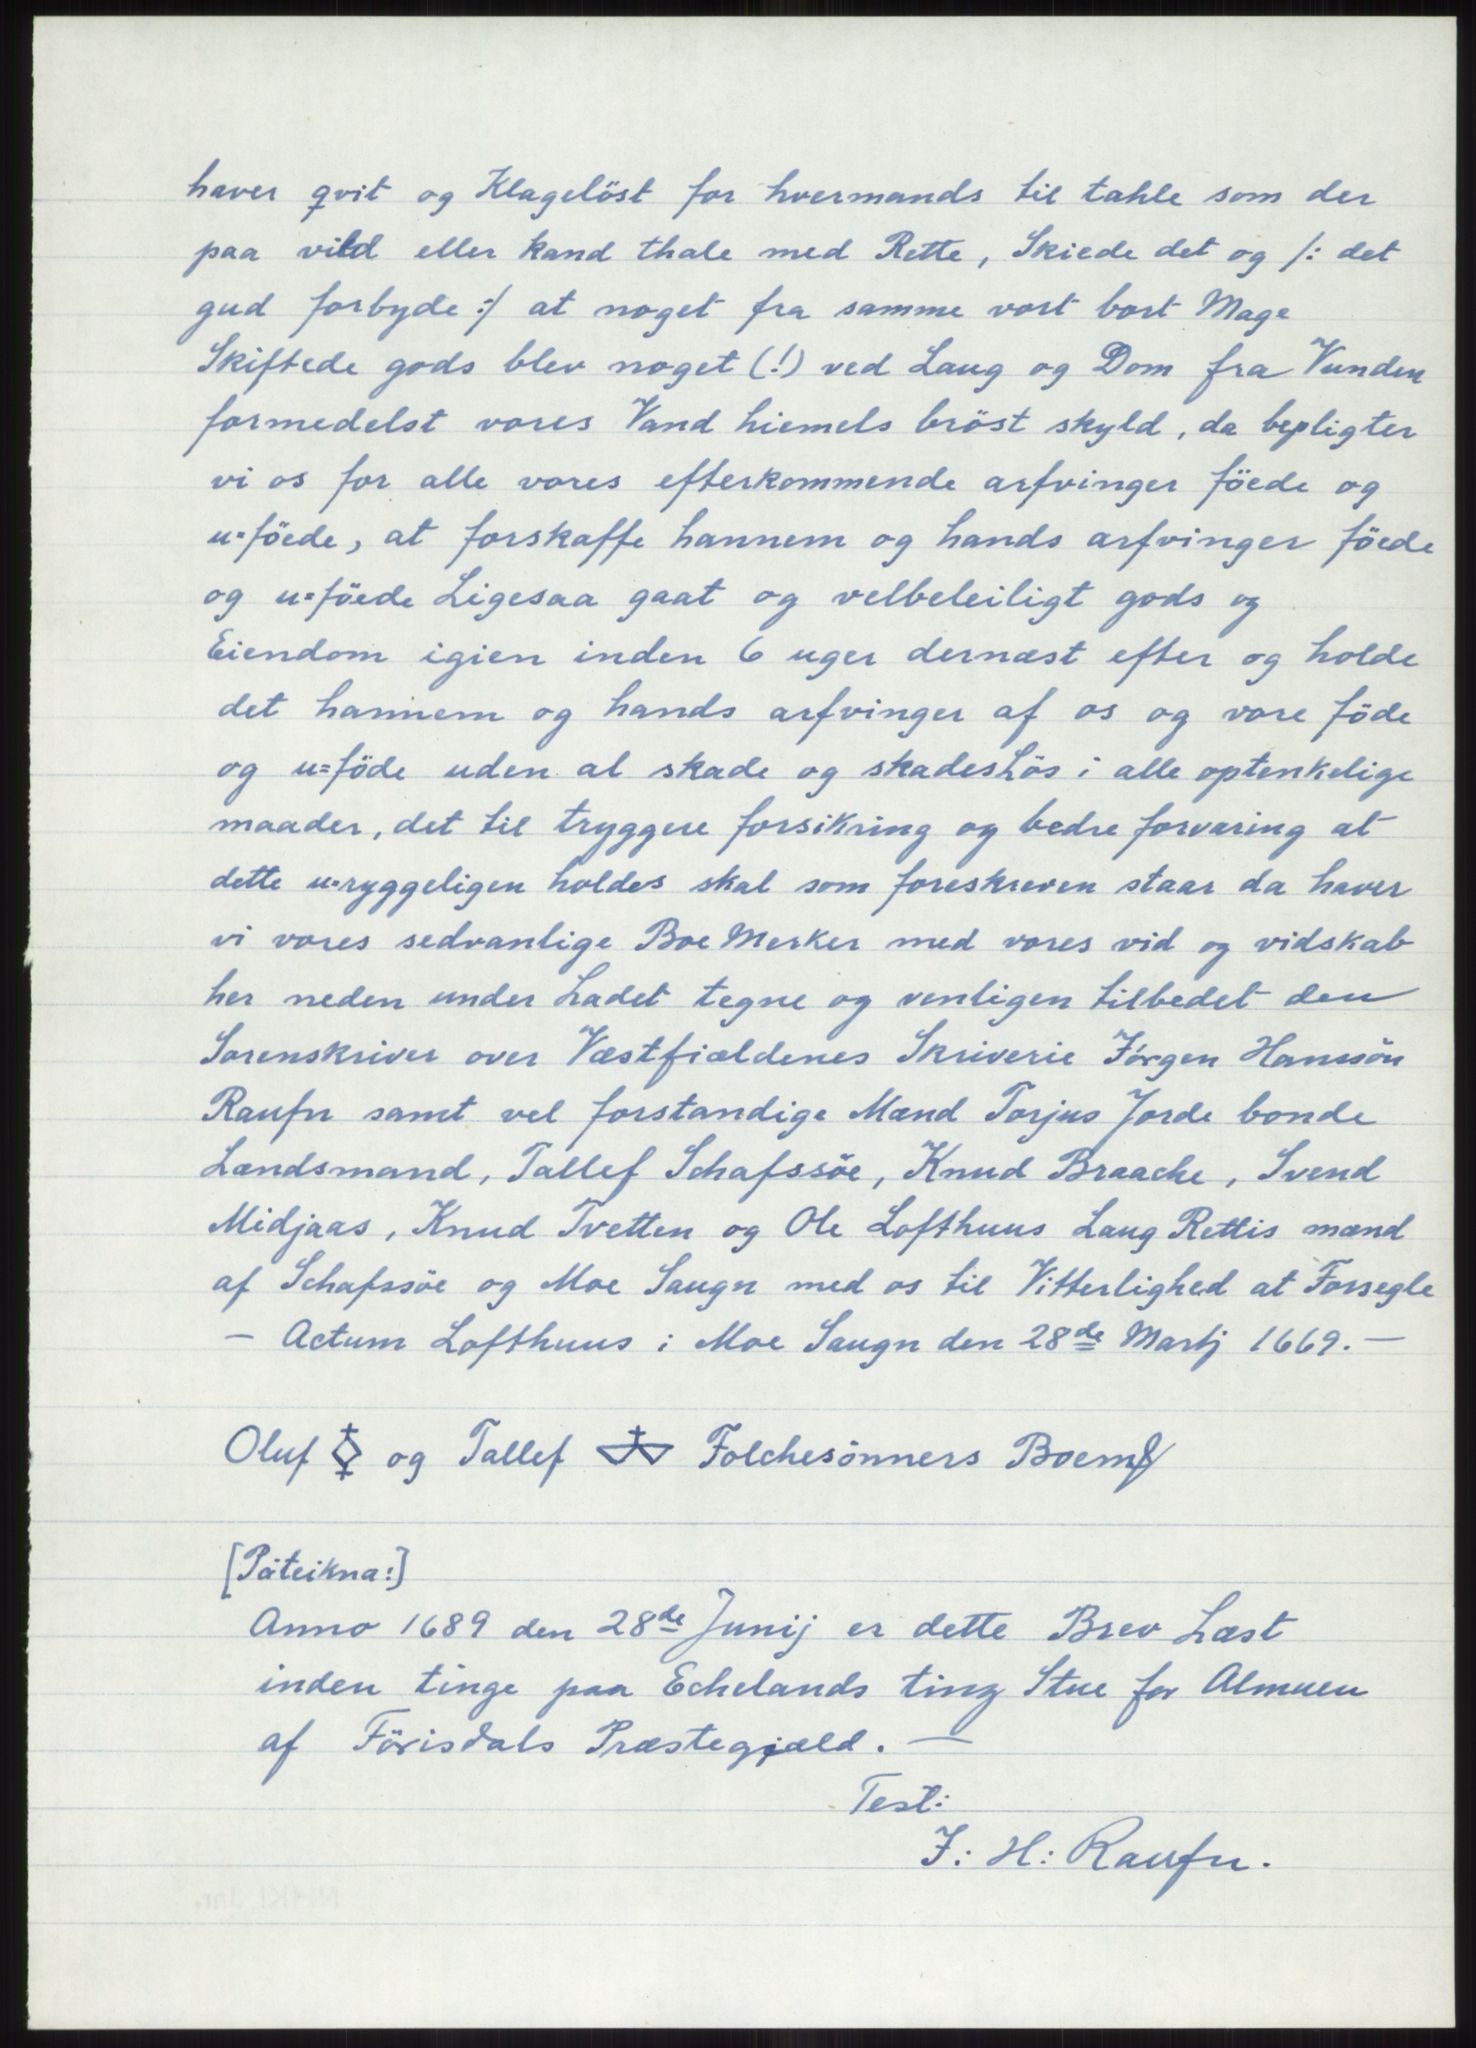 haver qvit og Klagelöst for hvermands til tahle som der
paa vild eller kand thale med Rette, Skiede det og /: det
gud forbyde :/ at noget fra samme vort bort Mage
Skiftede gods blev noget (!) ved Laug og Dom fra Vunden
formedelst vores Vand hiemels bröst skyld, da bepligter
vi os for alle vores efterkommende arfvinger föede og
u=föede, at forskaffe hannem og hands arfvinger föede
og u=föede Ligesaa gaat og velbeleiligt gods og
Eiendom igien inden 6 uger dernæst efter og holde
det hannem og hands arfvinger af os og vore föde
og u=föde uden al skade og skadesLös i alle optenkelige
maader, det til tryggere forsikring og bedre forvaring at
dette u=ryggeligen holdes skal som foreskreven staar da haver
vi vores sedvanlige Boe Merker med vores vid og vidskab
her neden under Ladet tegne og venligen tilbedet den
Sorenskriver over Væstfiældenes Skriverie Jörgen Hanssön
Raufn samt vel forstandige Mænd Torjus Jorde bonde
Lændsmand, Tallef Schafssöe, Knud Braache, Svend
Midjaas, Knud Tvetten og Ole Lofthuus Laug Rettis mænd
af Schafssöe og Moe Saugn med os til Vitterlighed at Forsegle
— Actum Lofthuus i Moe Saugn den 28de Martj 1669. —
Oluf og Tallef Folchesönners Boem
[Påteikna:]
Anno 1689 den 28de Junij er dette Brev Læst
inden tinge paa Echelands ting Stue for Almuen
af Förisdals Præstegjæld. —
Test:
J: H: Raufn.